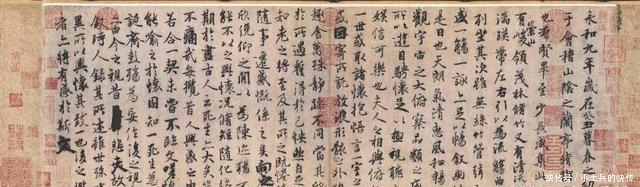 永和九年歲在癸丑暮春之
于會稽山陰之蘭亭脩
也群賢畢至少長咸集此
有崇山峻領茂林脩竹又有清流
湍暎帶左右引以為流觴曲
列坐其次雖無絲竹管弦
盛一觴一詠亦足以暢敘幽
是日也天朗氣清惠風和暢
觀宇宙之大俯察品類之
所以遊目騁懷足以極視聽
娛信可樂也夫人之相與俯
一世或取諸懷抱悟言一室
或因寄所託放浪形骸之外
趣舍萬殊靜躁不同當其
於所遇蹔得於己怏然自足
知老之將至及其所之既惓
隨事遷感慨係之矣向之
欣俛仰之閒以為陳迹猶
能不以之興懷況脩短隨化
期於盡古人云死生亦大矣
不痛哉每攬昔人興感之
若合一契未嘗不臨文嗟悼
能喻之於懷固知一死生為
誕齊彭殤為妄作後之視
亦由今之視昔悲夫故
敘時人錄其所述雖世殊
異所以興懷其致一也後之
者亦將有感於斯
快传号/小士兵的快传